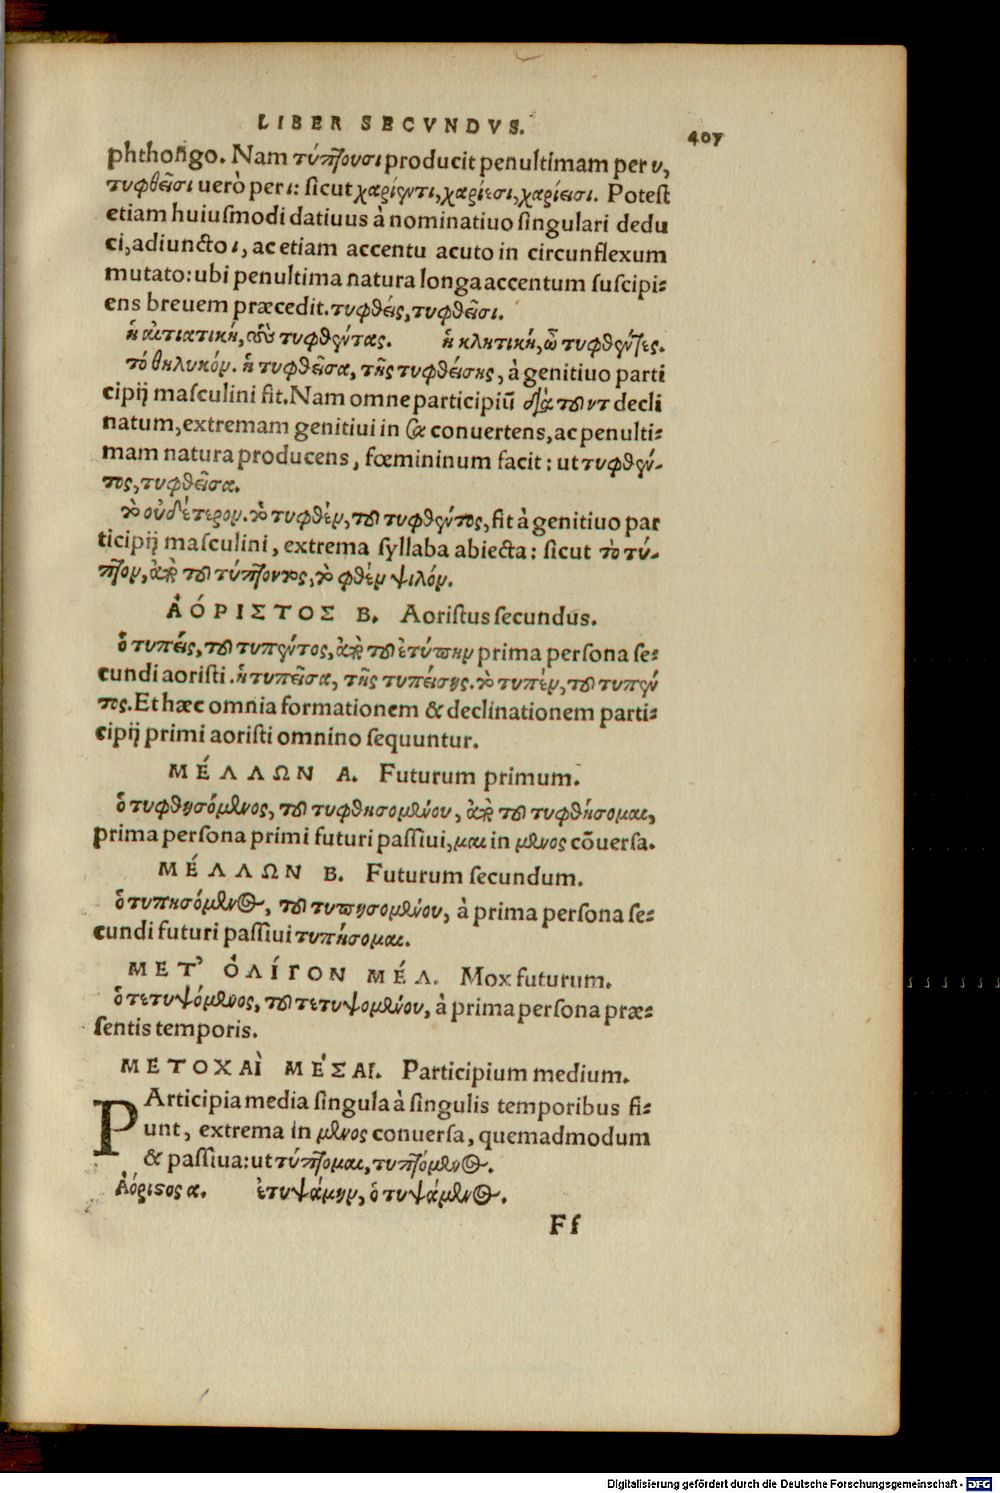 LIBER SECVNDVS.
407
phthongo. Nam τύπτουσι producit penultimam per υ,
τυφθεῖσι uerò per ι: ſicut χαρίεντι, χαρίεσι, χαρίεισι. Poteſt
etiam huiuſmodi datiuus à nominatiuo ſingulari dedu
ci, adiuncto ι, ac etiam accentu acuto in circunflexum
mutato: ubi penultima natura longa accentum ſuſcipi-
ens breuem præcedit. τυφθείς, τυφθεῖσι.
ἡ αἰτιατική, τοὺς τυφθέντας. ἡ κλητική, ὦ τυφθέντες.
τό θηλυκόν. ἡ τυφθεῖσα, τῆς τυφθείσης, à genitiuo parti
cipij maſculini fit. Nam omne participiũ διὰ τοῦ ντ decli
natum, extremam genitiui in σα conuertens, ac penulti-
mam natura producens, fœmininum facit: ut τυφθέν-
τος, τυφθεῖσα.
τὸ οὐδέτερον. τὸ τυφθέν, τοῦ τυφθέντος, fit à genitiuo par
ticipij maſculini, extrema ſyllaba abiecta: ſicut τὸ τύ-
πτον, ἀπὸ τοῦ τύπτοντος, τὸ φθέν ψιλόν.
ἈΌΡΙΣΤΟΣ Β. Aoriſtus ſecundus.
ὁ τυπείς, τοῦ τυπέντος, ἀπὸ τοῦ ἐτύπην prima perſona ſe-
cundi aoriſti. ἡ τυπεῖσα, τῆς τυπείσης. τὸ τυπέν, τοῦ τυπέν
τος. Et hæc omnia formationem & declinationem parti-
cipij primi aoriſti omnino ſequuntur.
ΜΈΛΛΩΝ Α. Futurum primum.
ὁ τυφθησόμενος, τοῦ τυφθησομένου, ἀπὸ τοῦ τυφθήσομαι,
prima perſona primi futuri paſſiui, μαι in μενος cõuerſa.
ΜΈΛΛΩΝ Β. Futurum ſecundum.
ὁ τυπησόμενος, τοῦ τυπησομένου, à prima perſona ſe-
cundi futuri paſſiui τυπήσομαι.
ΜΕΤ’ ὈΛΊΓΟΝ ΜΈΛ. Mox futurum.
ὁ τετυψόμενος, τοῦ τετυψομένου, à prima perſona præ-
ſentis temporis.
ΜΕΤΟΧΑῚ ΜΈΣΑΙ. Participium medium.
PArticipia media ſingula à ſingulis temporibus fi-
unt, extrema in μενος conuerſa, quemadmodum
& paſſiua: ut τύπτομαι, τυπτόμενος.
Ἀόριςος α. ἐτυψάμην, ὁ τυψάμενος.
Ff
Digitalisierung gefördert durch die Deutsche Forschungsgemeinschaft - DFG